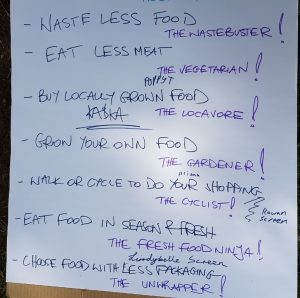 - WASTE LESS FOOD
THE WASTEBUSTER!
- EAT LESS MEAT
THE VEGETARIAN!
POPPY
- BUY LOCALLY GROWN FOOD
KASKA
THE LOCAVORE!
- GROW YOUR OWN FOOD
THE GARDENER!
- WALK OR CYCLE TO DO YOUR SHOPPING
THE CYCLIST!
Rowan
screen
- EAT FOOD IN SEASON & FRESH
THE FRESH FOOD NINJA!
Lundybelle Screen
- CHOOSE FOOD WITH LESS PACKAGING
THE UNWRAPPER!